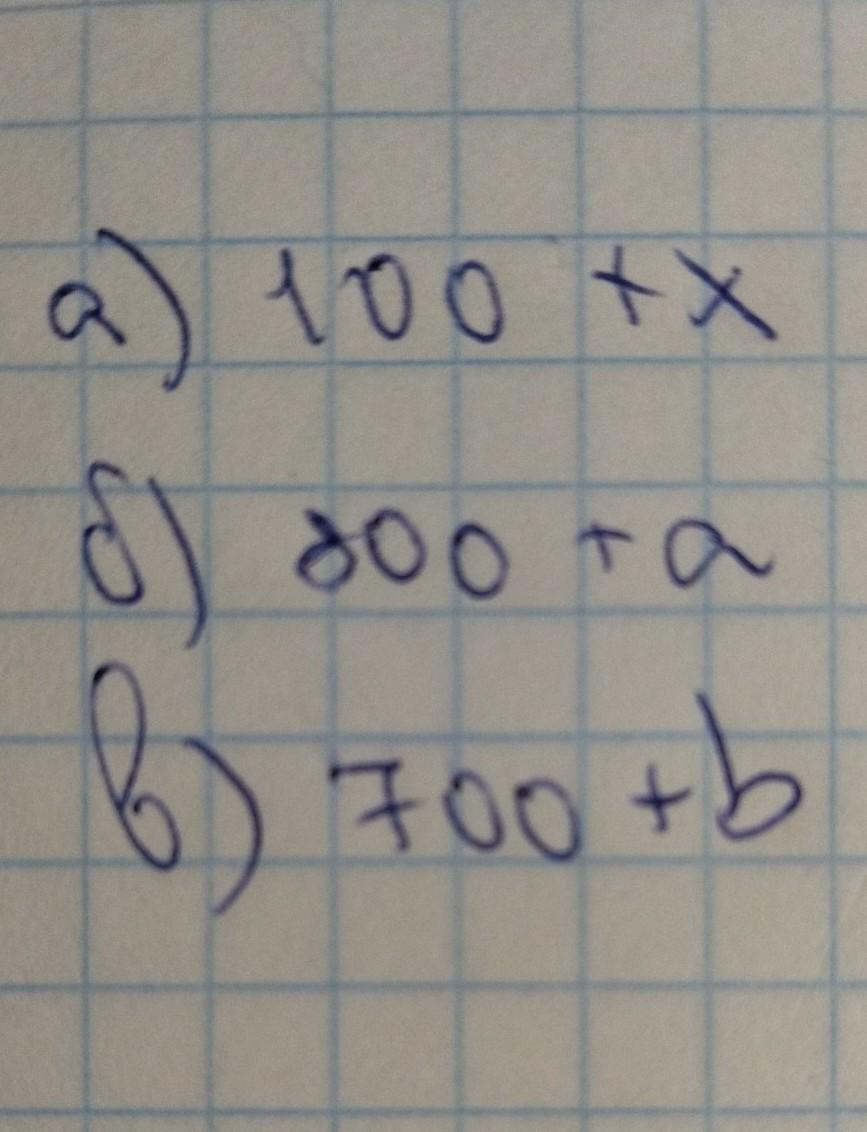 а) 100 + x
б) 800 + a
в) 700 + b